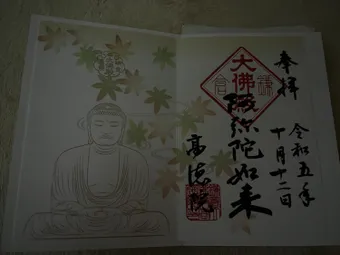 奉拝
令和五年
十月十二日
大佛
鎌倉
阿弥陀如来
高徳院